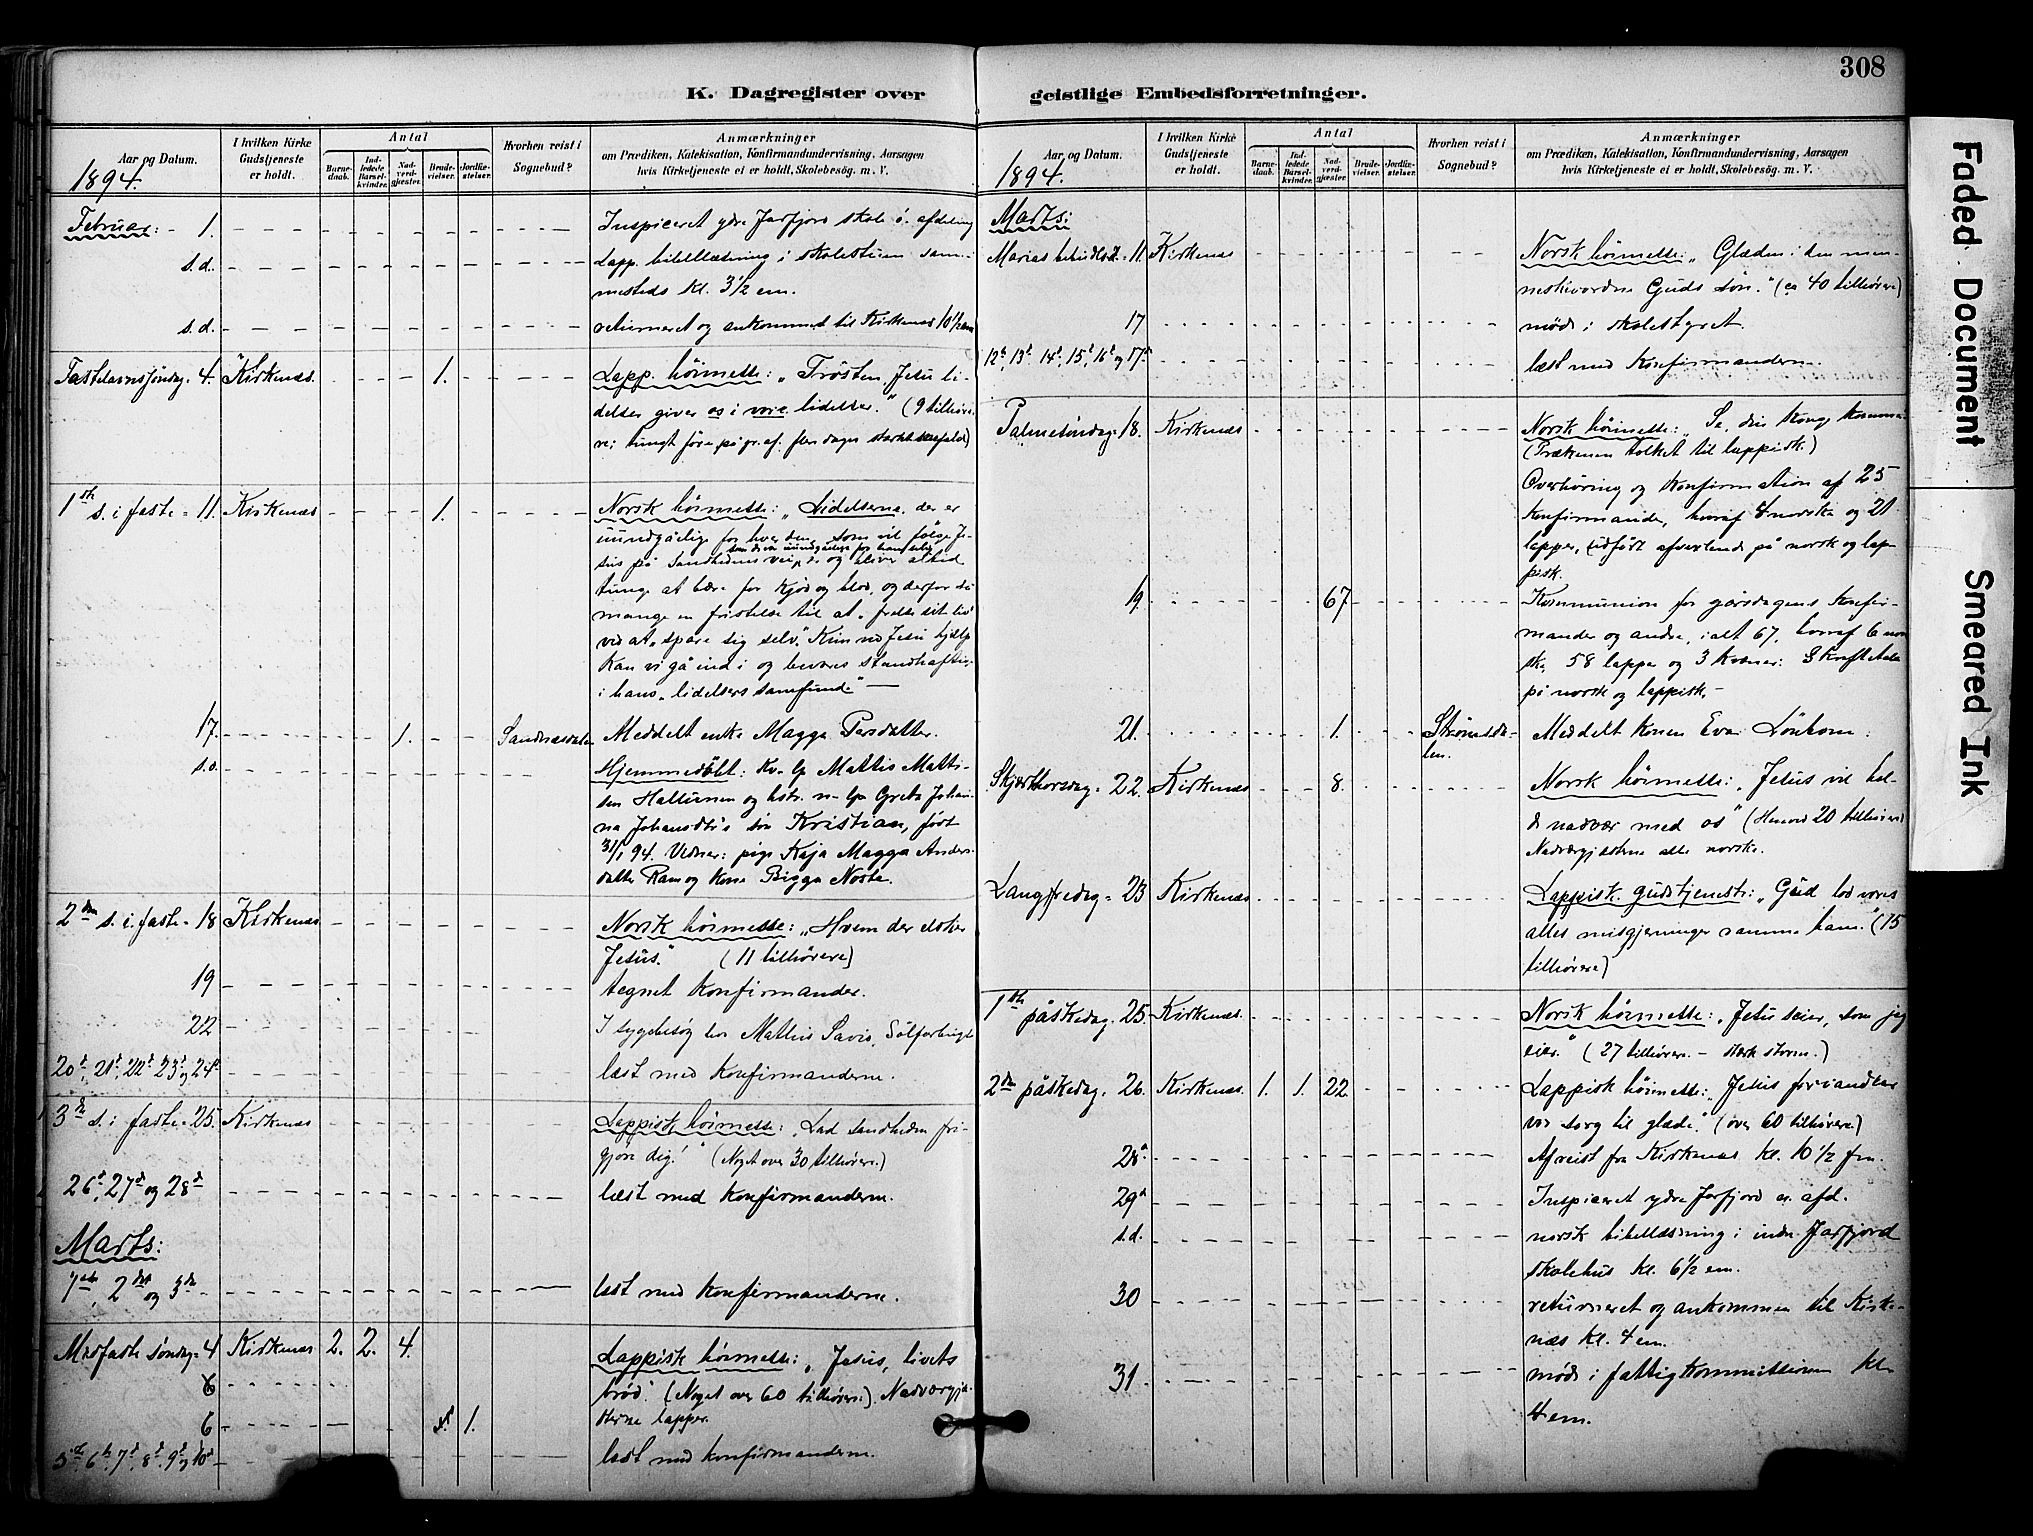 308
K. Dagregister over
geistlige Embedsforretninger.
Aar og Datum.
1894.
I hvilken Kirke
Gudstjeneste
er holdt.
Antal
Barne-
daab.
Ind-
ledede
Barsel-
kvinder.
Nad-
verd-
gjæster.
Brude-
vielser.
Jordfæ-
stelser.
Hvorhen reist i
Sognebud?
Anmærkninger
om Prædiken, Katekisation, Konfirmandundervisning, Aarsagen
hvis Kirketjeneste ei er holdt, Skolebesøg. m. V.
Februar: - 1. Inspiceret ydre Jarfjord skole ö. afdeling
s.d. Lapp. bibellæsning i skolestuen sam-
mesteds kl. 3 1/2 em.
s.d. returneret og ankommet til Kirkenæs 10 1/2 em
Fastelavnssöndag. 4. Kirkenæs. 1. Lapp. höimesse: „Trösten Jesu li-
delser giver os i vore lidelser." (9 tilhöre-
re; tungt före på gr. af flere dages stærkt snefald)
1ste s. i faste - 11. Kirkenæs 1. Norsk höimesse: „Lidelserne, der er
uundgåelige for hver den, som vil fölge Je-
sus på Sandhedens vei, og bliver altid
tunge at bære for kjöd og blod, og derfor så
mange en fristelse til at „frelse sit liv"
ved at „spare sig selv". Kun ved Jesu hjælp
kan vi gå ind i og bevares standhaftig
i hans „lidelsers samfund." —
17. 1. Sandnesdalen Meddelt enke Magga Persdatter.
s.d. Hjemmedöbt: Kv. lp Mattis Matti-
sen Halturnen og hstr. n-lp Greta Johan-
na Johansdtr's sön Kristian, född
31/1 94. Vidner: pige Kaja Magga Anders-
datter Ram og kone Bigga Noste.
2den s. i faste - 18 Kirkenæs Norsk höimesse: „Hvem der elsker
Jesus." (11 tilhörere)
19 tegnet konfirmander.
22 I sygebesög hos Mathis Savio,
20de, 21de, 22de 23de og 24de læst med konfirmanderne.
3die s. i faste - 25. Kirkenæs Lappisk höimesse: „Lad sandheden fri-
gjöre dig!" (Noget over 30 tilhörere.)
26de, 27de og 28de læst med konfirmanderne.
Marts:
1ste, 2den og 3die læst med konfirmanderne.
Midfaste söndag - 4 Kirkenæs 2. 2. 4. Lappisk höimesse: „Jesus, livets
6 bröd." (Noget over 60 tilhörere). Nadverdgjæ-
6 1. sterne lapper.
5te, 6te, 7de, 8de, 9de og 10de læst med konfirmanderne.
Aar og Datum.
1894.
I hvilken Kirke
Gudstjeneste
er holdt.
Antal
Barne-
daab.
Ind-
ledede
Barsel-
kvinder.
Nad-
verd-
gjæster.
Brude-
vielser.
Jordfæ-
stelser.
Hvorhen reist i
Sognebud?
Anmærkninger
om Prædiken, Katekisation, Konfirmandundervisning, Aarsagen
hvis Kirketjeneste ei er holdt, Skolebesøg. m. V.
Marts:
Marias bebudelsesd. - 11. Kirkenæs Norsk höimesse: „Glæden i den men-
neskevordne Guds sön." (ca 40 tilhörere)
17 möde i skolestyret.
12te, 13de, 14de, 15de, 16de og 17de læst med konfirmanderne.
Palmesöndag - 18. Kirkenæs Norsk höimesse: „Se, din konge kommer."
(Prækenen tolket til lappisk.)
Overhöring og konfirmation af 25
konfirmander, hvoraf 4 norske og 21
lapper, (udfört afvexlende på norsk og lap-
pisk.
19. 67 Kommunion for gårsdagens konfir-
mander og andre, ialt 67, hvoraf 6 nor-
ske, 58 lapper og 3 kvæner. Skriftetale
på norsk og lappisk. -
21. 1. Strömsda-
len. Meddelt konen Eva Lönbom.
Skjærthorsdag - 22. Kirkenæs 8. Norsk höimesse: „Jesus vil hol-
de nadvær med os" (Henved 20 tilhörere)
Nadværgjæsterne alle norske.
Langfredag - 23 Kirkenæs Lappisk gudstjeneste: „Gud lod vores
alles misgjerninger ramme ham." (15
tilhörere)
1ste påskedag. 25. Kirkenæs. Norsk höimesse: „Jesu seier, som jeg
eier." (27 tilhörere. - stærk storm.)
2den påskedag. 26. Kirkenæs. 1. 1. 22. Lappisk höimesse: „Jesus forvandler
vor sorg til glæde." (over 60 tilhörere)
28de Afreist fra Kirkenæs kl. 10 1/2 fm.
29de Inspiceret ydre Jarfjord v. afd.
s.d. norsk bibellæsning i indre Jarfjord
skolehus kl. 6 1/2 em.
30 returneret og ankommen til Kirke-
næs kl. 4 em.
31 möde i fattigkommissionen kl.
4 em.
Faded Document
Smeared Ink